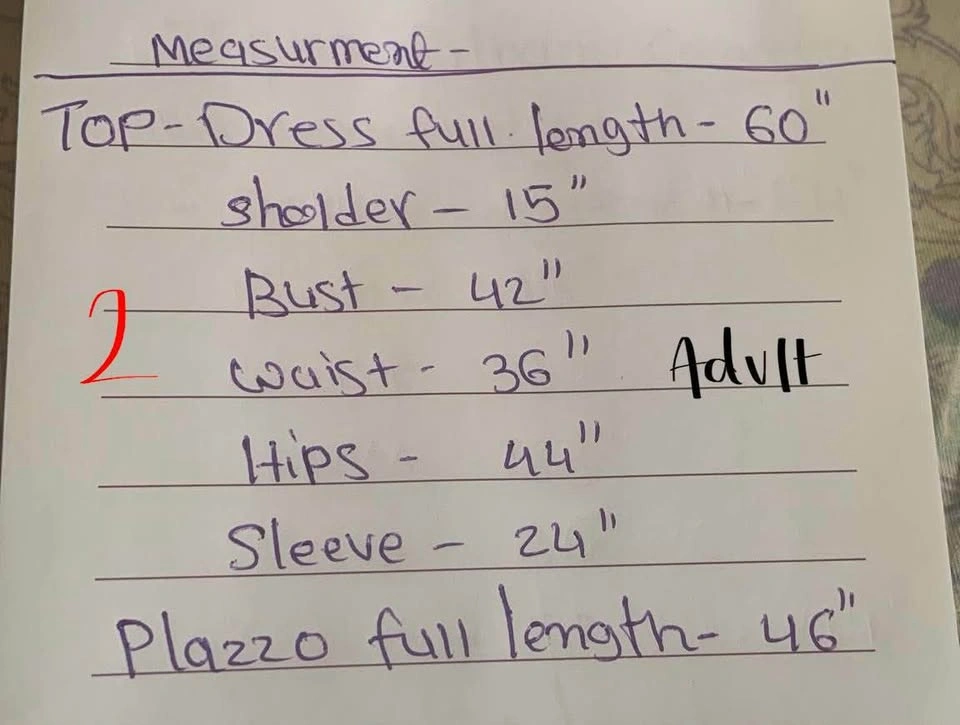 Measurment -
Top - Dress full length - 60"
sholder - 15"
Bust - 42"
2
waist - 36" Adult
Hips - 44"
Sleeve - 24"
Plazzo full length - 46"